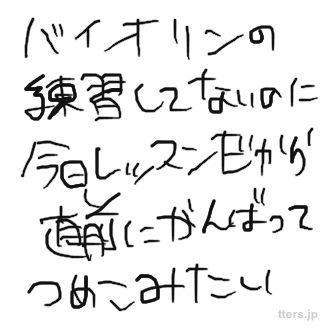 バイオリンの
練習してないのに
今日レッスンだから
直前にがんばって
つめこみたい
tters.jp